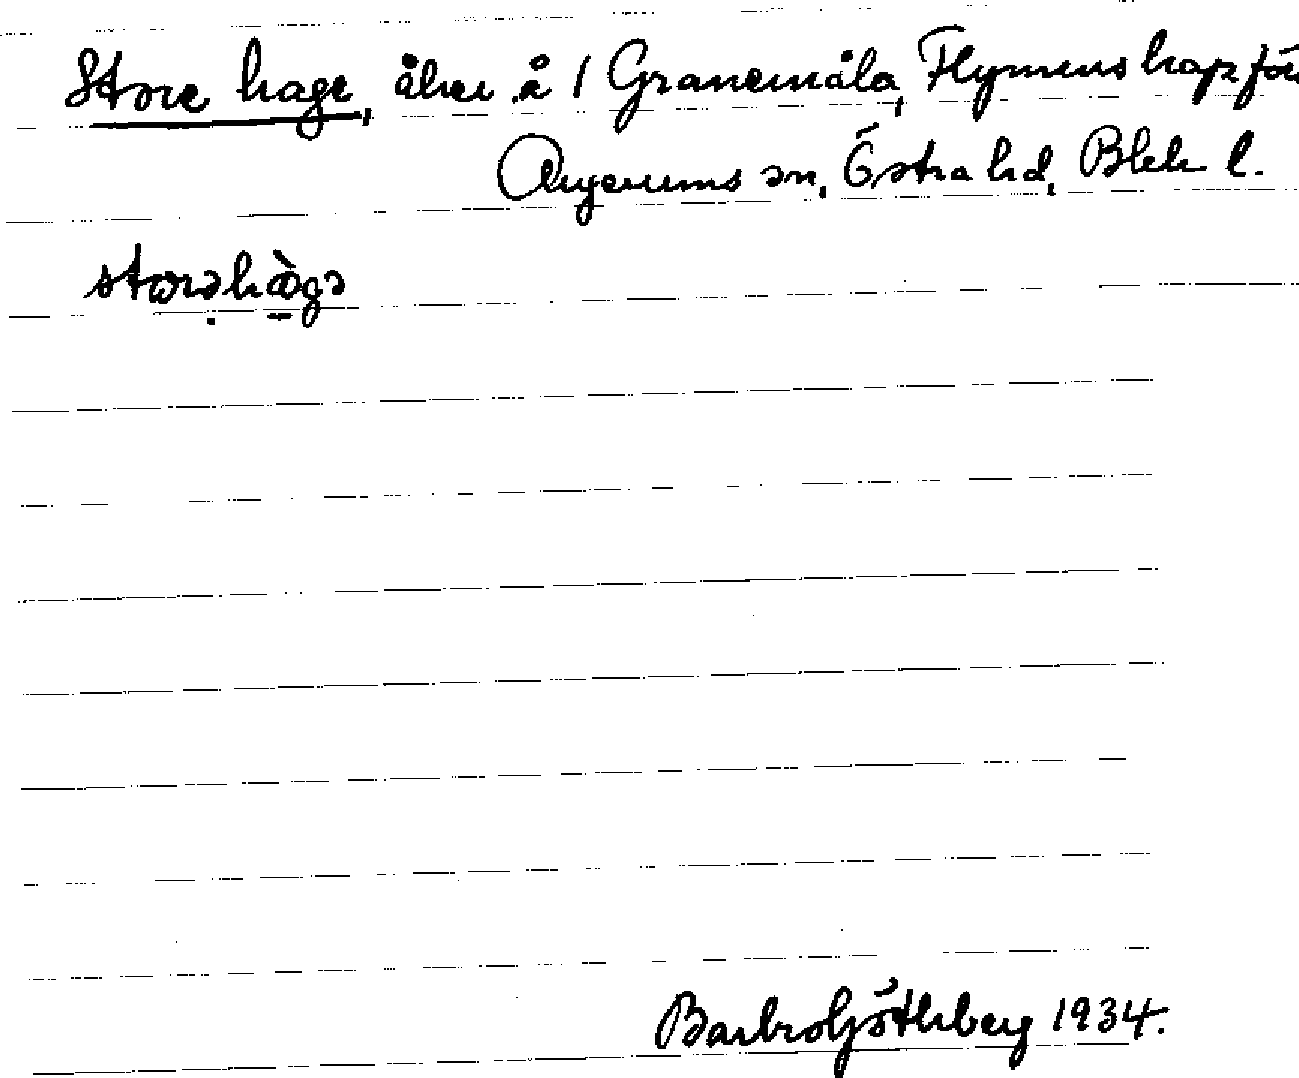 Store hage, åker å 1 Granemåla, Flymens kapför
Augerums sn, Östra hd, Blek l.
storəhɑ̀gə
Barbro Götlberg 1934.